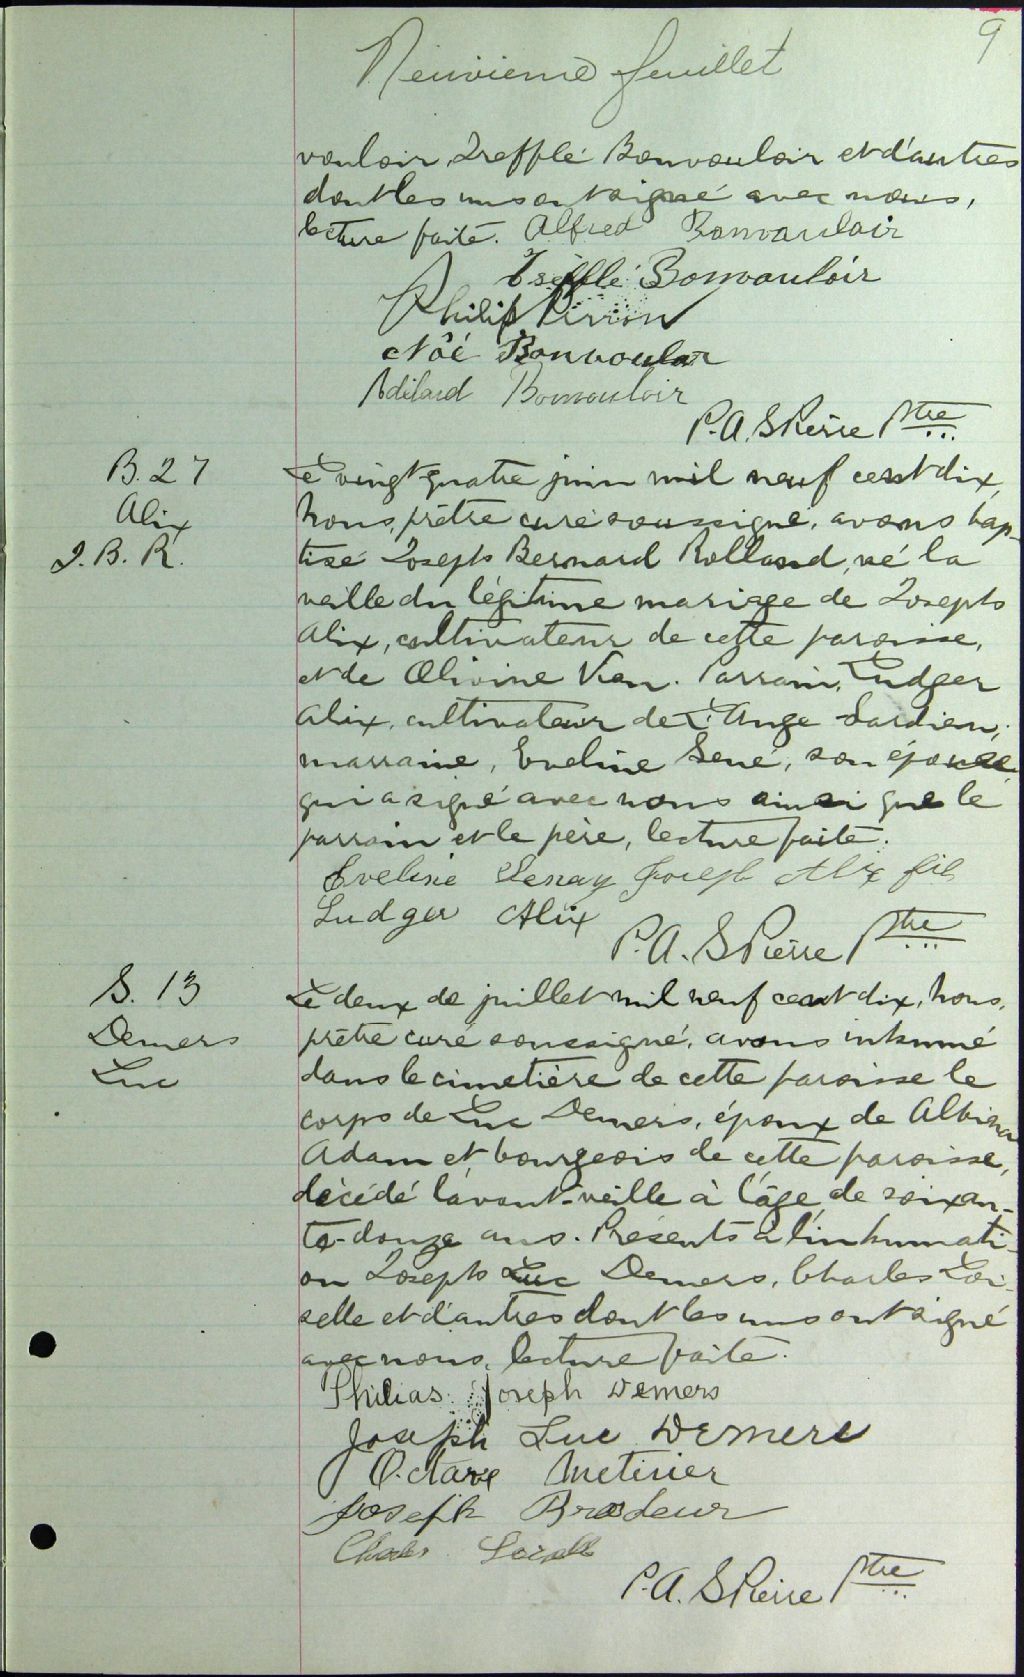 9
Neuvième feuillet
vouloir, Trefflé Bonvouloir et d'autres
dont les uns ont signé avec nous,
lecture faite. Alfred Bonvouloir
Trefflé Bonvouloir
Philip Pirron
Noé Bonvouloir
Adélard Bonvouloir
P. A. S Pierre Ptre
B. 27
Alix
J. B. R.
Le vingt-quatre juin mil neuf cent dix,
Nous, prêtre curé soussigné, avons bap-
tisé Joseph Bernard Rolland, né la
veille du légitime mariage de Joseph
Alix, cultivateur de cette paroisse,
et de Olivine Vien. Parrain, Ludger
Alix, cultivateur de L'Ange Gardien;
marraine, Eveline Sené, son épouse
qui a signé avec nous ainsi que le
parrain et le père, lecture faite.
Eveline Senay Joseph Alix fils
Ludger Alix
P. A. S Pierre Ptre
S. 13
Demers
Luc
Le deux de juillet mil neuf cent dix, Nous,
prêtre curé soussigné, avons inhumé
dans le cimetière de cette paroisse le
corps de Luc Demers, époux de Albina
Adam et bourgeois de cette paroisse,
décédé l'avant-veille à l'âge de soixan-
te-douze ans. Présents à l'inhumati-
on Joseph Luc Demers, Charles Loi-
selle et d'autres dont les uns ont signé
avec nous, lecture faite.
Philias Joseph Demers
Joseph Luc Demers
Octave Metivier
Joseph Brodeur
P. A. S Pierre Ptre